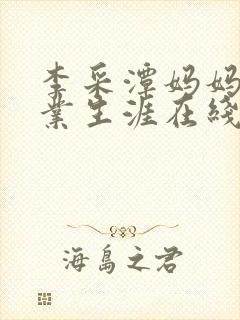 李采潭妈妈
业生涯在线
海岛之君